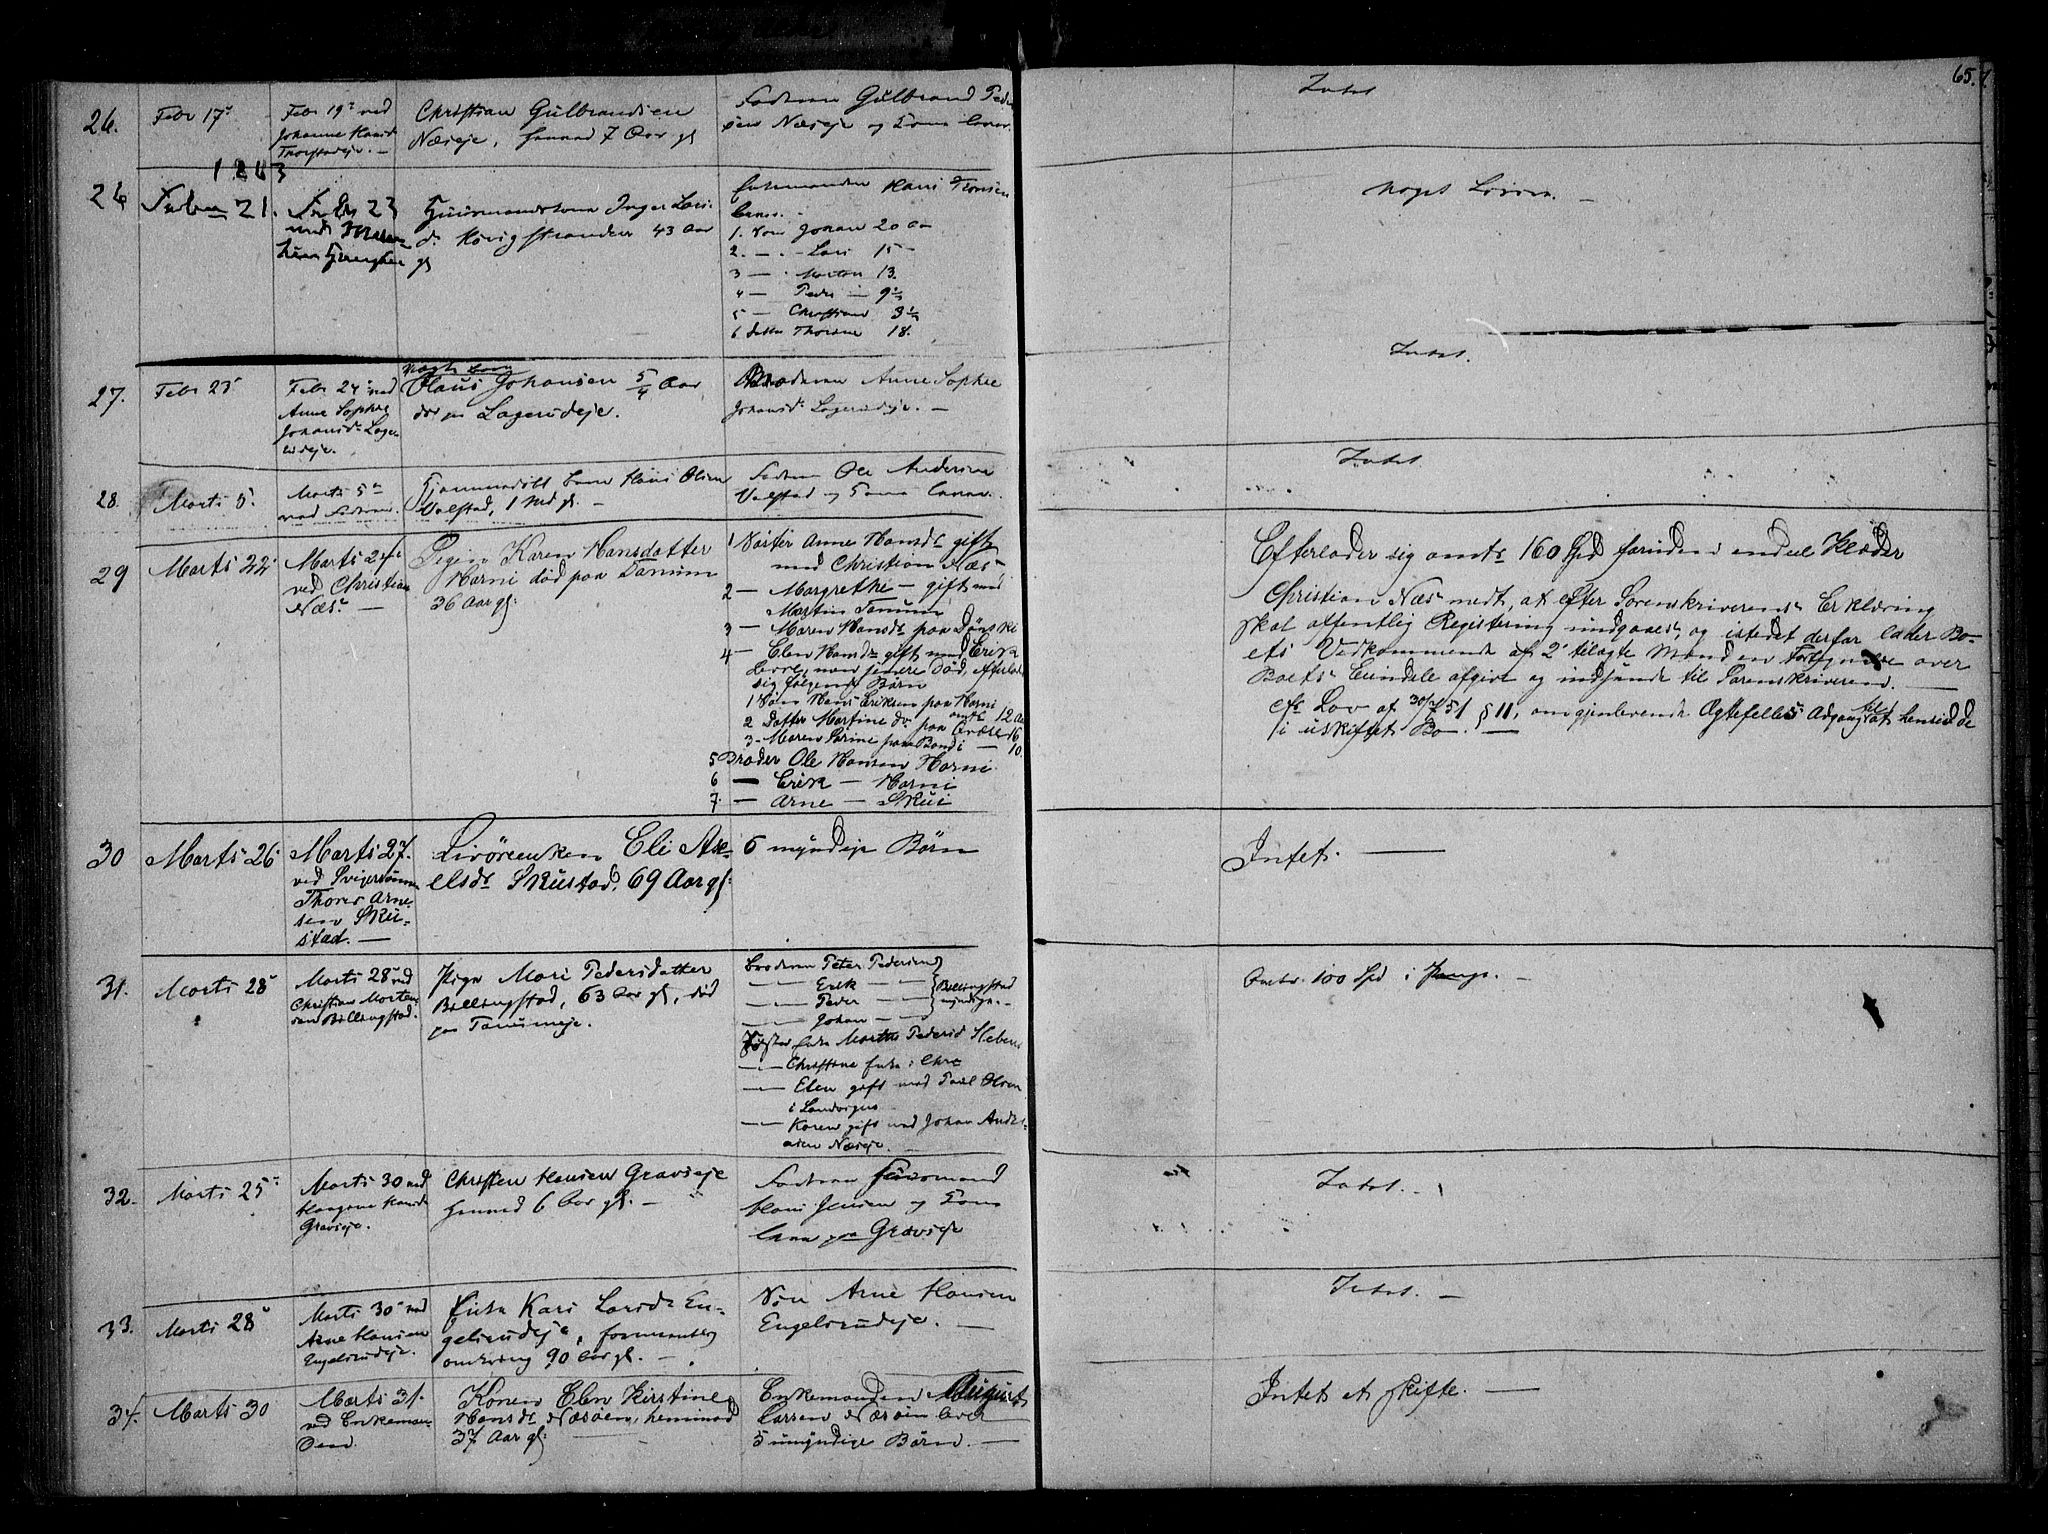 65.
26.
Febr 17
Febr 19 ved
Johanne Hansd
Thorstadeje. —
Christian Gulbrandsen
Næseje, henved 7 Aar gl
Faderen Gulbrand Peder
sen Næseje og Kone lever.
Intet
1863
26
Febr 21.
Febr 23
ved
Huusmandskone Inger Lars
d. 43 Aar
gl
Enkemanden Hans
lever. -
1. Søn Johan 20 Aar
2. — - Lars 15 —
3 — - Morten 13.
4 — Peder — 9½
5 — Christian 3½
6 Datter Thorine 18.
noget Løsøre. —
27.
Febr 23
Febr 24 ved
Anne Sophie
Johansd. Lager
udeje.
uægte Barn
Olaus Johansen 5/4 Aar
død paa Lagerudeje.
Moderen Anne Sophie
Johansd. Lagerudeje. —
Intet.
28.
Marts 5
Marts 5
ved Faderen.
Hjemmedøbt Barn Hans Olsen
Valstad, 1 Md gl. —
Faderen Ole Andersen
Valstad og Kone lever.
Intet
29
Marts 22
Marts 24
ved Christian
Næs. —
Pigen Karen Hansdatter
Horni død paa Tanum
36 Aar gl:
1 Søster Anne Hansd. gift
med Christian Næs
2 — Margrethe — gift med
Martin Tanum
3 — Maren Hansd. paa Dønski
4 — Elen Hansd. gift med Erik
senere død, efterlod
sig følgende Børn
1 Søn Hans Eriksen paa Horni
2 Datter Martine do paa 12 Aar
3 - Maren Sørine paa Bondi — 10.
5 Broder Ole Hansen Horni
6 — Erik — Horni
7. — Arne — Skui
Efterlader sig omtr 160 Spd foruden endel Klæder
Christian Næs medt., at efter Sorenskriverens Erklæring
skal offentlig Registering undgaaes, og istedet derfor lader Bo-
ets Vedkommende af 2 tiltagte Mænd en Fortegnelse over
Boets Eiendele afgive og indsende til Sorenskriveren. —
cfr Lov af 30/7 51 § 11, om gjenlevende Ægtefelles Adgang til at hensidde
i uskiftet Bo. —
30
Marts 26
Marts 27.
ved Svigersønnen
Thorer Arne-
sen Sku-
stad. —
Livøreenken Eli Ax-
elsd. Skustad, 69 Aar gl:
6 myndige Børn
Intet. —
31.
Marts 28
Marts 28 ved
Christian Morten
sen Billingstad.
Pige Mari Pedersdatter
Billingstad, 63 Aar gl., død
paa Tanumeje.
Brødrene Peter Pedersen
— — Erik — —
— — Peder — —
— — Johan — —
Billingstad
myndige. -
Søster Enke Marthe Pedersd
— — Christine Enke i Chra
— — Elen gift med Paul Olsen
i Landvigen
— — Karen gift med Johan Anders-
sen Næseje
Omtr. 100 Spd i Penge. —
32.
Marts 25
Marts 30 ved
Hansd
Gravseje.
Christen Hansen Gravseje
henved 6 Aar gl. —
Faderen Huusmand
Hans Jensen og Kone
lever paa Gravseje
Intet. —
33.
Marts 28
Marts 30 ved
Arne Hansen
Engelsrudeje.
Enke Kari Larsd. En-
gelsrudeje, formentlig
omkring 90 Aar gl. —
Søn Arne Hansen
Engelsrudeje. —
Intet. —
34.
Marts 30
Marts 31.
ved Enkeman-
den.
Konen Elen Kirstine
Hansd. Næsøen, henimod
37 Aar gl: —
Enkemanden August
Larsen Næsøen lever
5 umyndige Børn. —
Intet at skifte. —